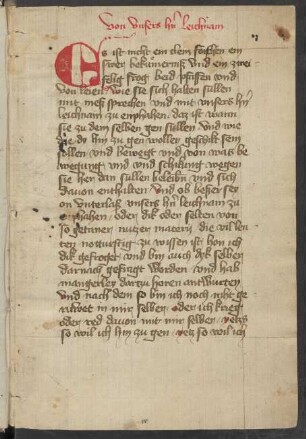 Von vnsers hn̄ leichnam
Es ist nicht ein dem solchen ein
swer bekümernuß vnd ein zwei
felig frog beid pfaffen vnd
von leien wie sie sich halten sullen
mit meß sprechen vnd mit vnsers hn̄
leichnam zu enpfahen daz ist wann
sie zu dem selben gen sullen vnd wie
sie do hin zu gen wollen geschikt sein
sollen vnd bewegt vnd von was be
wegung vnd schikung wegen
sie her dan sullen beleibn̄ vnd sich
davon enthalten vnd ob besser sey
on vnterlaß vnsers hn̄ leichnam zu
enpfahen oder dik oder selten von
so getaner nutzer matery die vil leu
ten notdurftig zu wissen ist bon ich
dik gefroget vnd bin auch dik selber
darnach gefragt worden vnd hab
mangerley dortzu horen antwurten
vnd nach dem so bin ich noch nicht ge
in mir selber oder ich krieg
oder red davon mit mir selber yetz
so wil ich hin zu gen yetz so wil ich